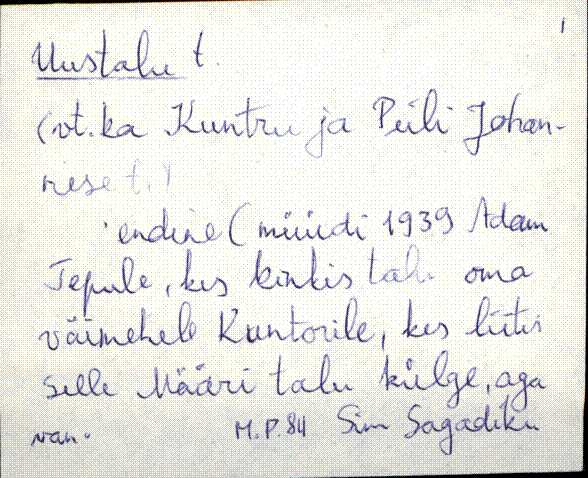 1
Uustalu t.
(vt. ka Kuntru ja Peili Johan-
nese t.)
endine (müüdi 1939 Adam
Tepule, kes kinkis talu oma
väimehele Kuntorile, kes liitis
selle Määri talu külge, aga
van.
M.P. 84 Sim Sagadiku